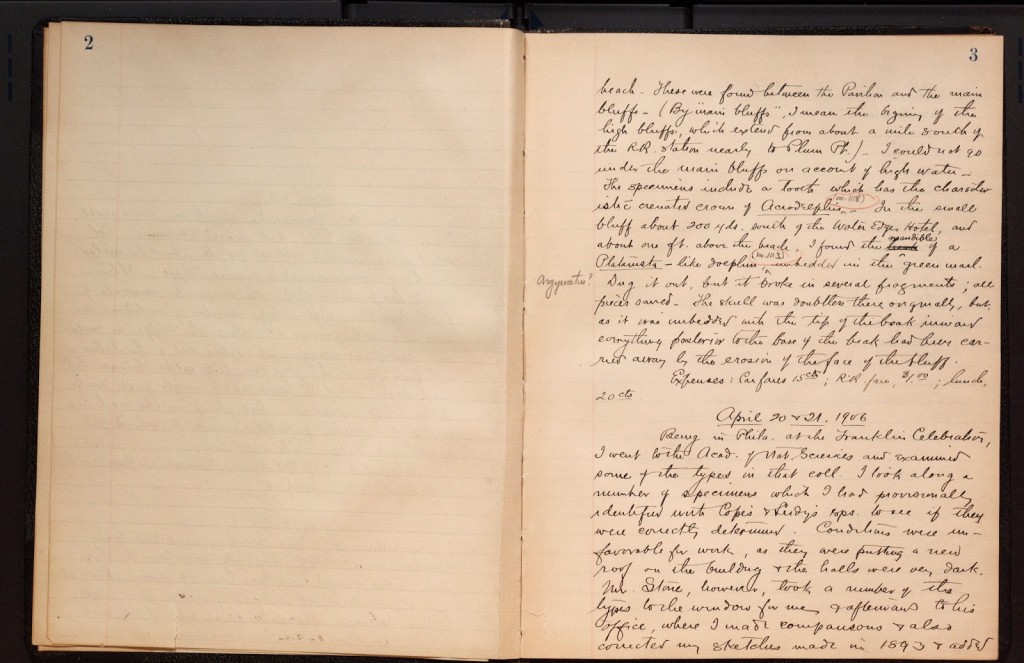 2
3
beach. These were found between the Pavilion and the main
bluffs. (By "main bluffs", I mean the bigining of the
high bluffs, which extend from about a mile south of
the R.R. station nearly to Plum Pt.) I could not go
under the main bluffs on account of high water.
The specimens include a tooth which has the character
istic crenated crown of Acrodelphis
In the small
bluff about 200 yds. south of the Water Edge Hotel, and
mandible
about one ft. above the beach, I found the of a
Platanista-like dolphin imbedded in the green marl.
Dug it out, but it broke in several fragments; all
pieces saved. The skull was doubtless there originally, but
as it was imbedded with the tip of the beak inward
everything posterior to the base of the beak had been car-
ried away by the erosion of the face of the bluff.
Expenses: Car fares 15 cts; R.R. fare, $1.00; lunch,
20 cts
April 20 & 21. 1906
Being in Phila. at the Franklin Celebration,
I went to the Acad. of Nat. Sciences and examined
some of the types in that coll. I took along a
number of specimens which I had provisionally
identified with Cope's & Leidy's sps. to see if they
were correctly determined. Conditions were un-
favorable for work, as they were putting a new
roof on the building & the halls were very dark.
Mr. Stone, however, took a number of the
types to the window for me, & afterwards to his
office, where I made comparisons & also
corrected my sketches made in 1893 & added